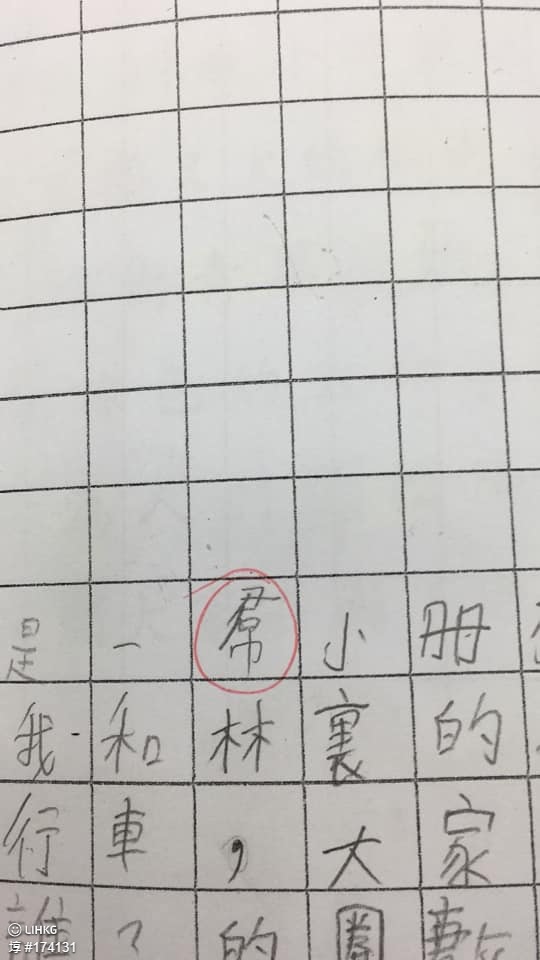 是一帬小冊
我和林裏的
行車，大家
的
LIHKG
#174131